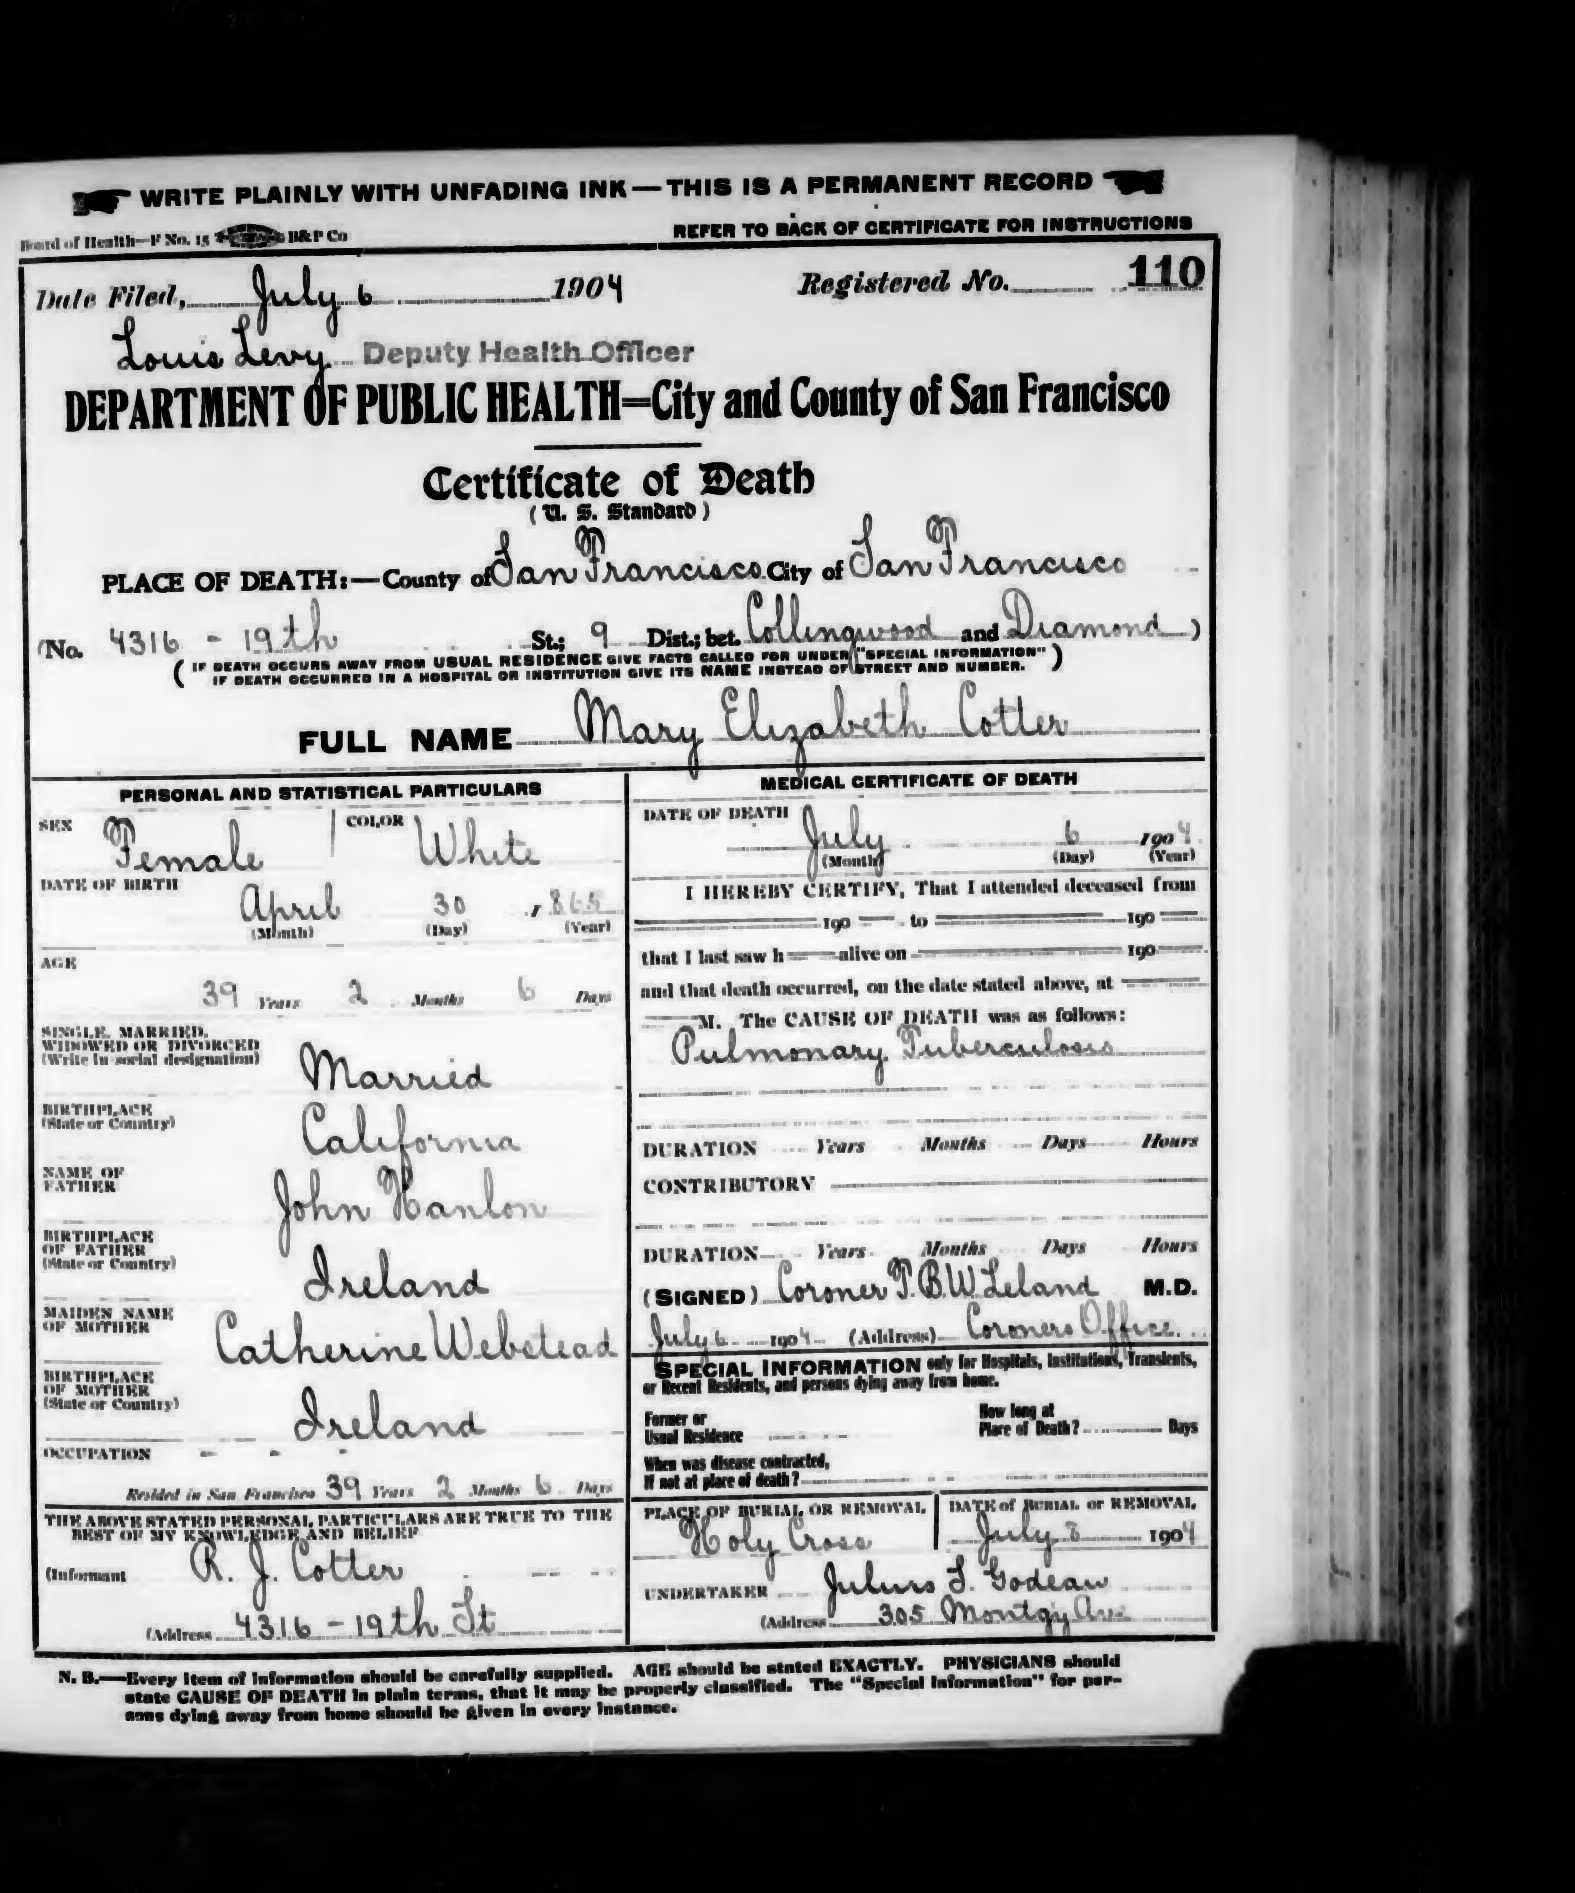 WRITE PLAINLY WITH UNFADING INK—THIS IS A PERMANENT RECORD
Board of Health—F No. 15 B&P Co
REFER TO BACK OF CERTIFICATE FOR INSTRUCTIONS
Date Filed, July 6 1904 Registered No. 110
Louis Levy Deputy Health Officer
DEPARTMENT OF PUBLIC HEALTH=City and County of San Francisco
Certificate of Death
(U. S. Standard)
PLACE OF DEATH:—County of San Francisco City of San Francisco
(No. 4316 - 19th St.; 9 Dist.; bet. Collingwood and Diamond )
( IF DEATH OCCURS AWAY FROM USUAL RESIDENCE GIVE FACTS CALLED FOR UNDER "SPECIAL INFORMATION" )
IF DEATH OCCURRED IN A HOSPITAL OR INSTITUTION GIVE ITS NAME INSTEAD OF STREET AND NUMBER.
FULL NAME Mary Elizabeth Cotter
PERSONAL AND STATISTICAL PARTICULARS
SEX Female COLOR White
DATE OF BIRTH
April 30, 1865
(Month) (Day) (Year)
AGE
39 Years 2 Months 6 Days
SINGLE, MARRIED,
WIDOWED OR DIVORCED
(Write in social designation)
Married
BIRTHPLACE
(State or Country)
California
NAME OF
FATHER
John Hanlon
BIRTHPLACE
OF FATHER
(State or Country)
Ireland
MAIDEN NAME
OF MOTHER
Catherine Webstead
BIRTHPLACE
OF MOTHER
(State or Country)
Ireland
OCCUPATION - - -
Resided in San Francisco 39 Years 2 Months 6 Days
THE ABOVE STATED PERSONAL PARTICULARS ARE TRUE TO THE
BEST OF MY KNOWLEDGE AND BELIEF
(Informant R. J. Cotter
(Address 4316 - 19th St
MEDICAL CERTIFICATE OF DEATH
DATE OF DEATH
July 6 1904
(Month) (Day) (Year)
I HEREBY CERTIFY, That I attended deceased from
190 to 190
that I last saw h alive on 190
and that death occurred, on the date stated above, at
M. The CAUSE OF DEATH was as follows:
Pulmonary Tuberculosis
DURATION Years Months Days Hours
CONTRIBUTORY
DURATION Years Months Days Hours
(SIGNED) Coroner T. B. W. Leland M.D.
July 6 1904 (Address) Coroners Office
SPECIAL INFORMATION only for Hospitals, Institutions, Transients,
or Recent Residents, and persons dying away from home.
Former or
Usual Residence
How long at
Place of Death? Days
When was disease contracted,
If not at place of death?
PLACE OF BURIAL OR REMOVAL
Holy Cross
DATE of BURIAL or REMOVAL
July 8 1904
UNDERTAKER Julius S. Godeau
(Address 305 Montgy Ave
N. B.—Every item of information should be carefully supplied. AGE should be stated EXACTLY. PHYSICIANS should
state CAUSE OF DEATH in plain terms, that it may be properly classified. The "Special Information" for per-
sons dying away from home should be given in every instance.